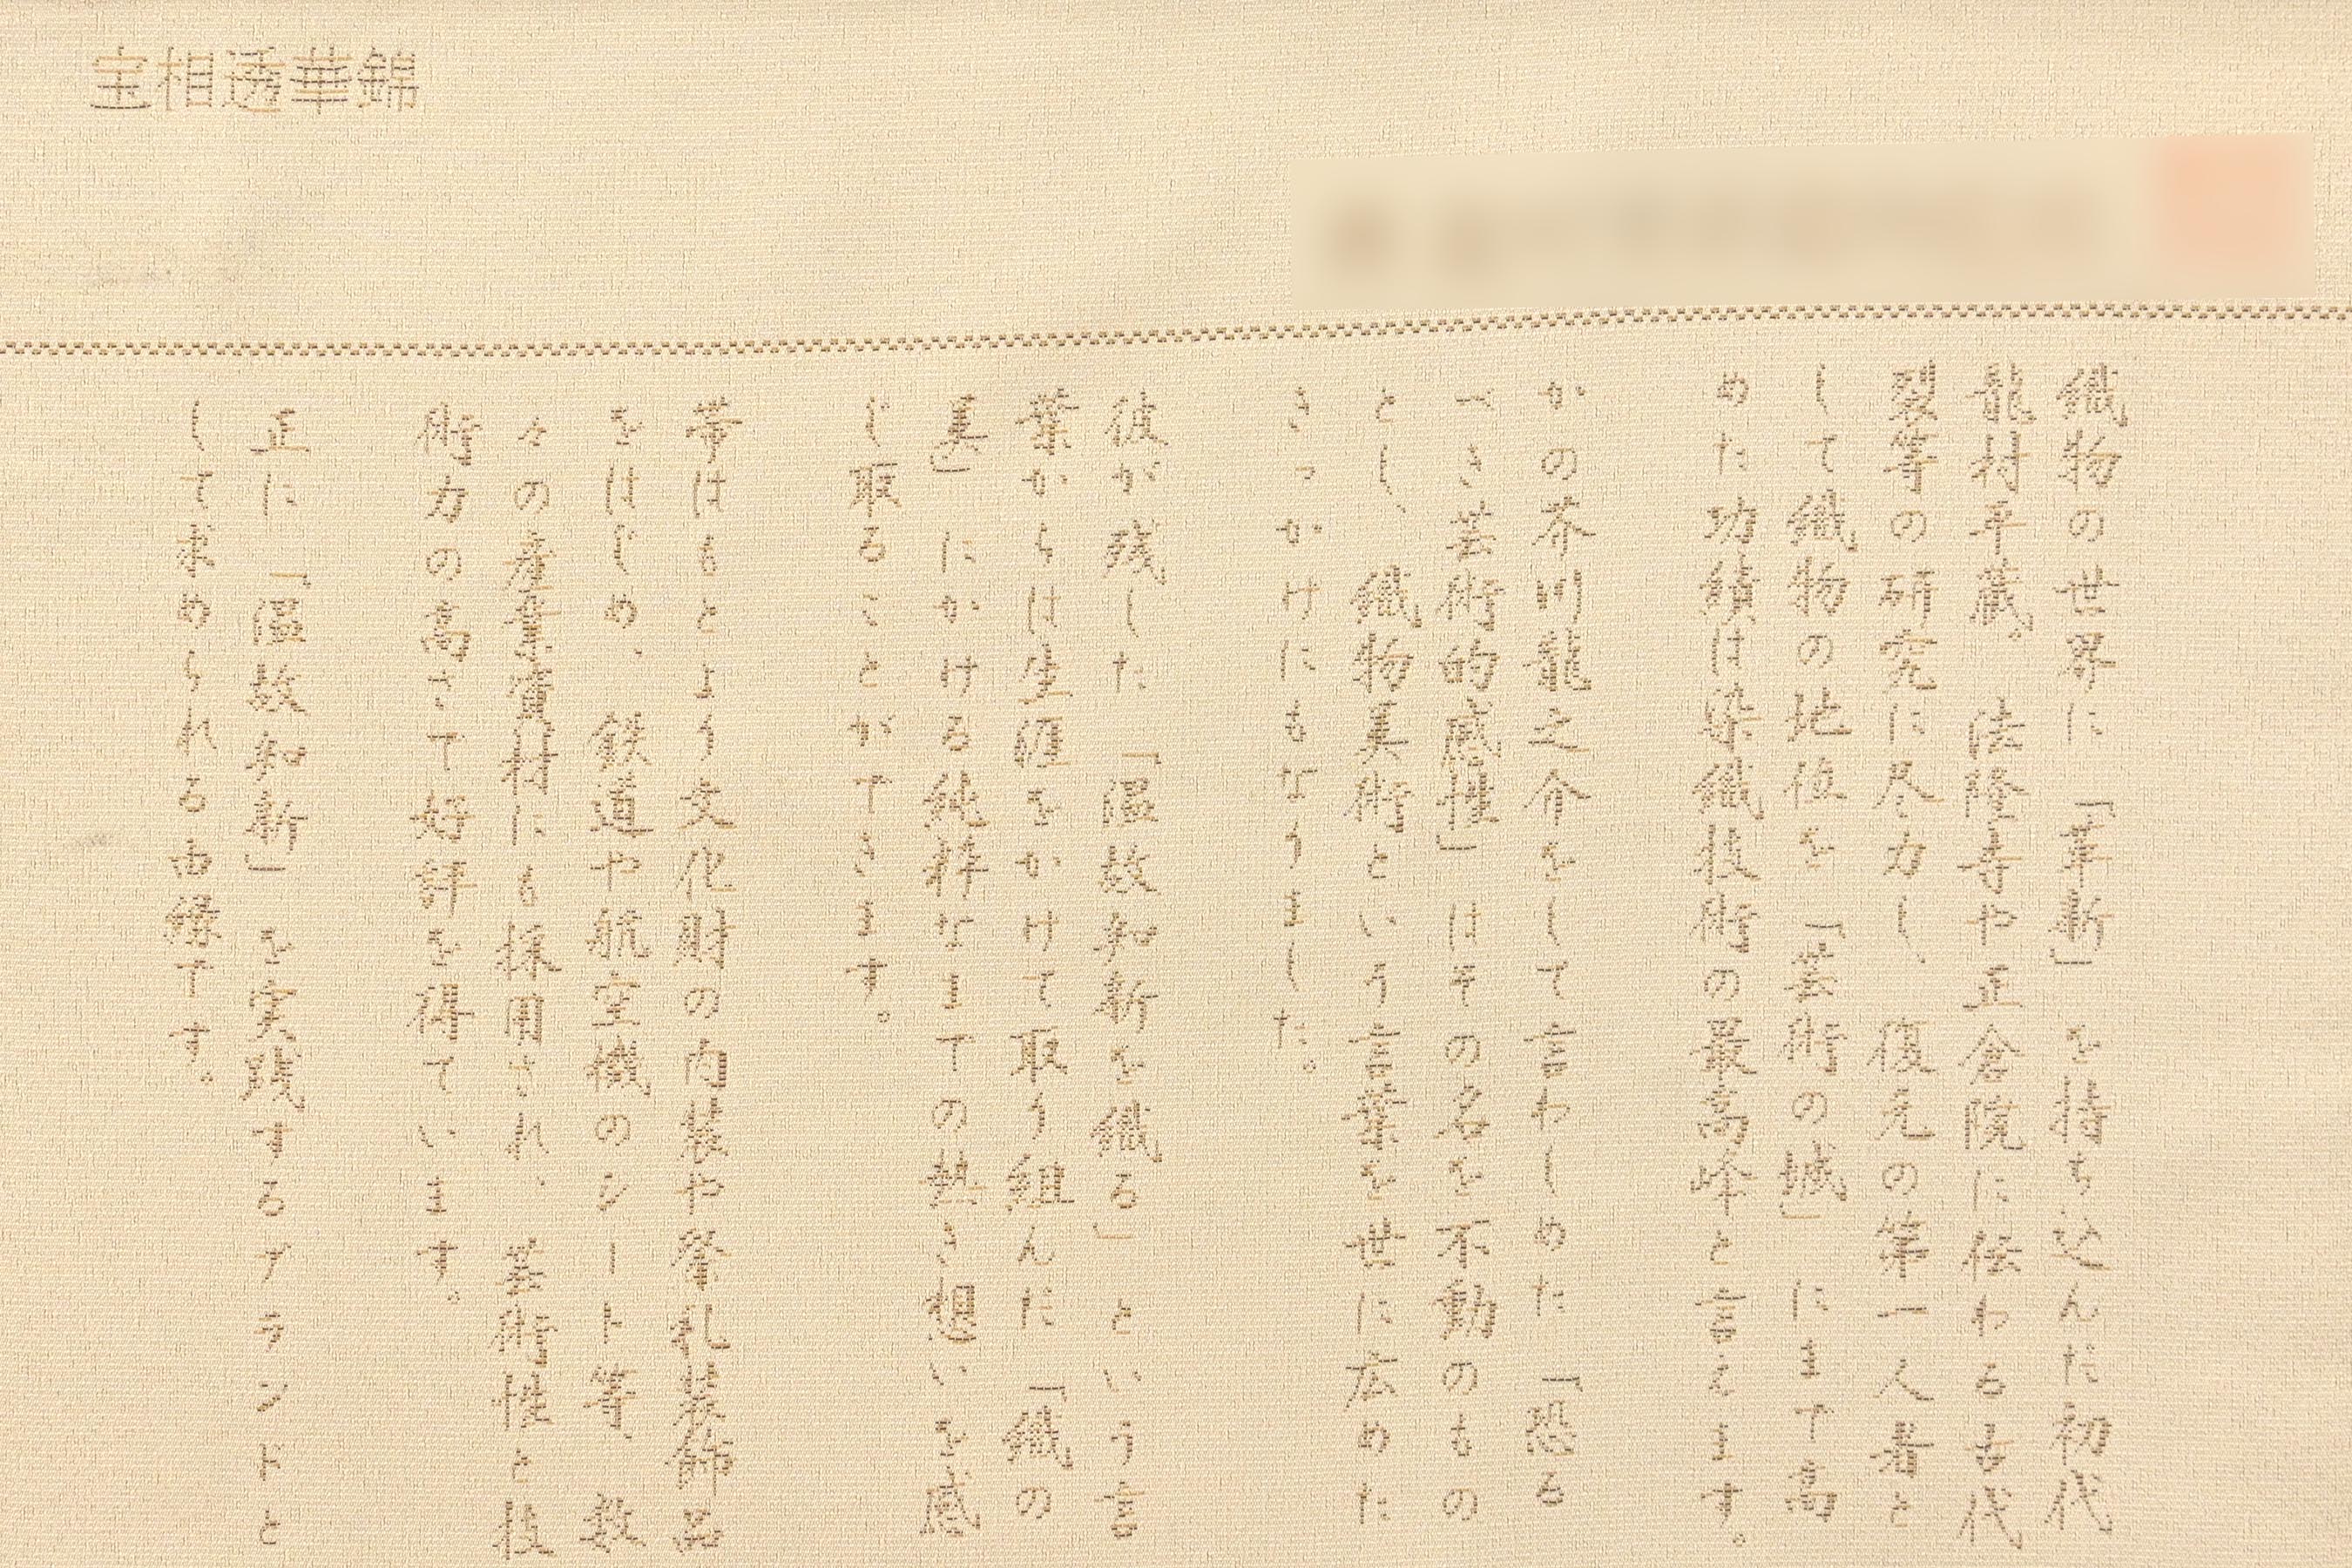 宝相透華錦
織物の世界に「革新」を持ち込んだ初代
龍村平蔵。法隆寺や正倉院に伝わる古代
裂等の研究に尽力し、復元の第一人者と
して織物の地位を「芸術の域」にまで高
めた功績は染織技術の最高峰と言えます。
かの芥川龍之介をして言わしめた「恐る
べき芸術的感性」はその名を不動のもの
とし、織物美術という言葉を世に広めた
きっかけにもなりました。
彼が残した「温故知新を織る」という言
葉からは生涯をかけて取り組んだ「織の
美」にかける純粋なまでの熱き想いを感
じ取ることができます。
帯はもとより文化財の内装や祭礼装飾品
をはじめ、鉄道や航空機のシート等数
々の産業資材にも採用され、芸術性と技
術力の高さで好評を得ています。
正に「温故知新」を実践するブランドと
して求められる由縁です。